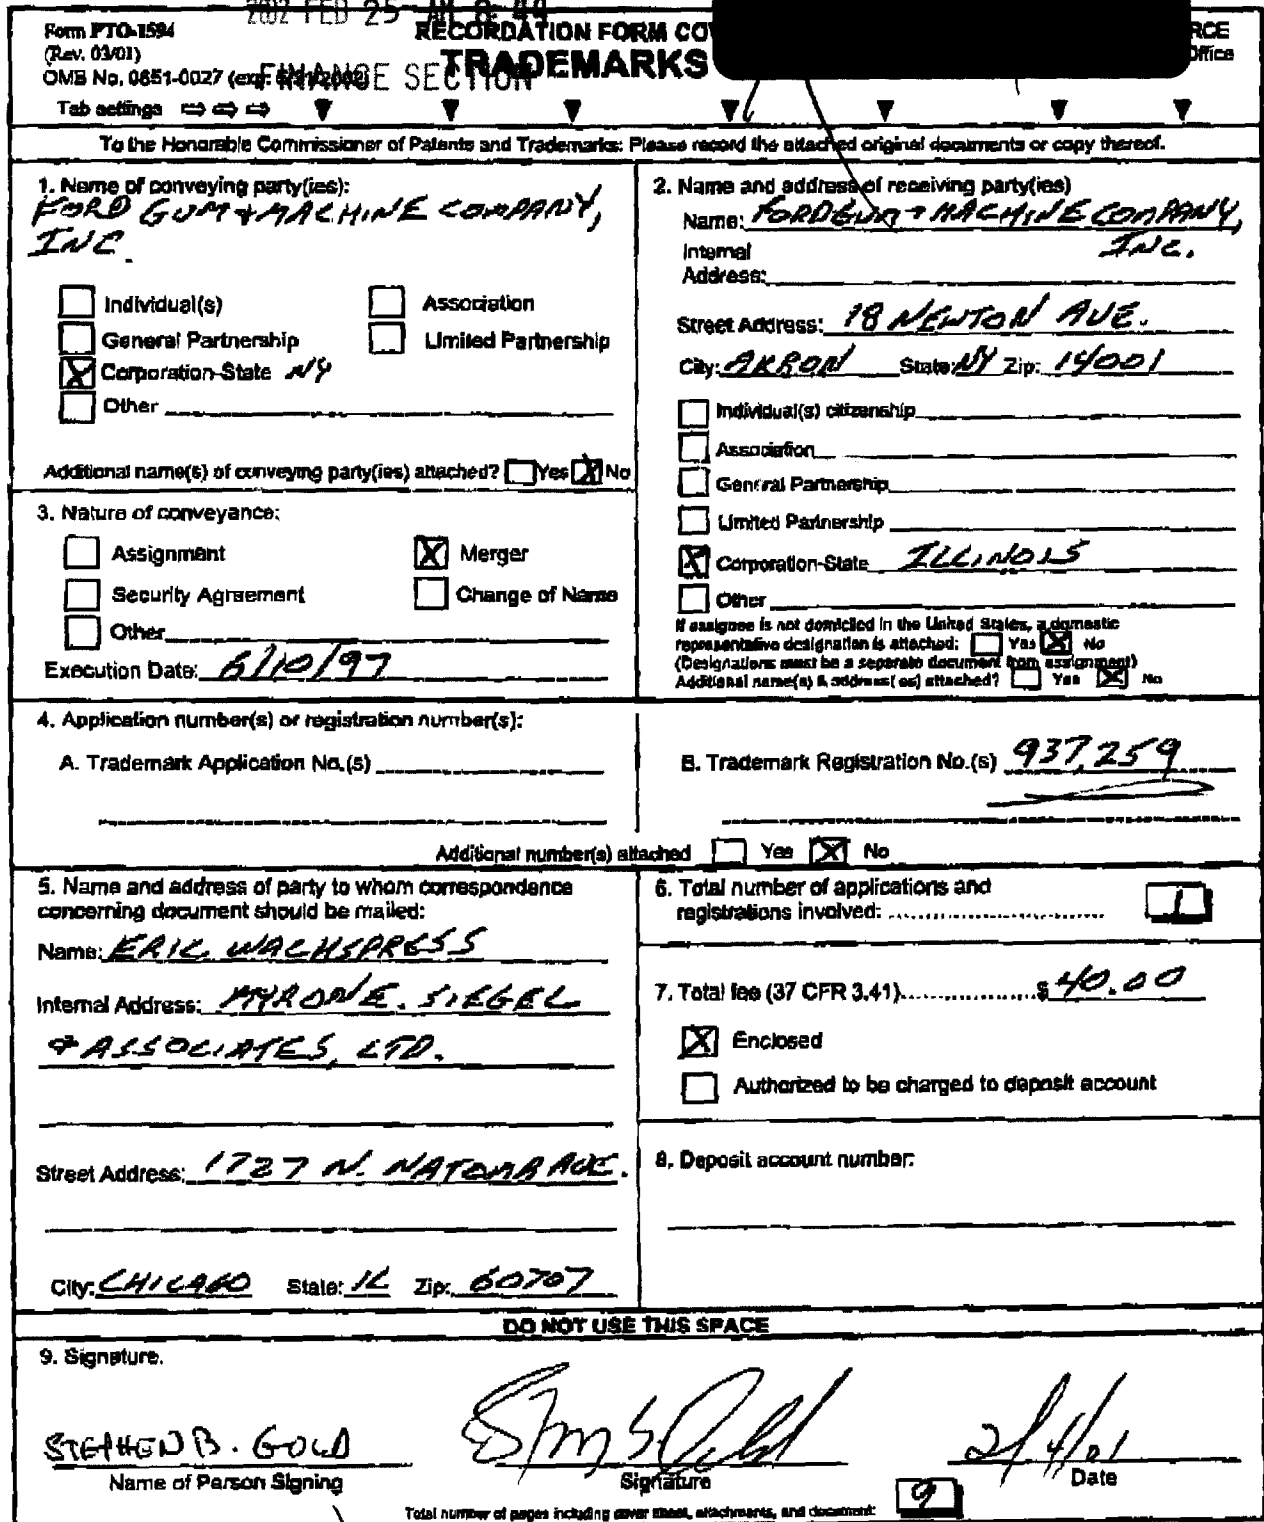 2002 FEB 25 AM 8: 44
Form PTO-1594
RECORDATION FORM CO
RCE
(Rev. 03/01)
TRADEMARKS
Office
OMB No. 0651-0027 (exp.
FINANCE SECTION
Tab settings ⇨ ⇨ ⇨ ▼ ▼ ▼ ▼ ▼ ▼ ▼
To the Honorable Commissioner of Patents and Trademarks: Please record the attached original documents or copy thereof.
1. Name of conveying party(ies):
FORD GUM + MACHINE COMPANY,
INC.
Individual(s)
Association
General Partnership
Limited Partnership
X Corporation-State NY
Other
Additional name(s) of conveying party(ies) attached? Yes X No
2. Name and address of receiving party(ies)
Name: FORD GUM + MACHINE COMPANY,
INC.
Internal
Address:
Street Address: 18 NEWTON AVE.
City: AKRON State: NY Zip: 14001
Individual(s) citizenship
Association
General Partnership
Limited Partnership
X Corporation-State ILLINOIS
Other
If assignee is not domiciled in the United States, a domestic
representative designation is attached: Yes X No
(Designations must be a separate document from assignment)
Additional name(s) & address( es) attached? Yes X No
3. Nature of conveyance:
Assignment
X Merger
Security Agreement
Change of Name
Other
Execution Date: 6/10/97
4. Application number(s) or registration number(s):
A. Trademark Application No.(s)
B. Trademark Registration No.(s) 937,259
Additional number(s) attached Yes X No
5. Name and address of party to whom correspondence
concerning document should be mailed:
Name: ERIC WACHSPRESS
Internal Address: MYRON E. SIEGEL
& ASSOCIATES, LTD.
Street Address: 1727 N. NATOMA AVE.
City: CHICAGO State: IL Zip: 60707
6. Total number of applications and
registrations involved: 1
7. Total fee (37 CFR 3.41) $ 40.00
X Enclosed
Authorized to be charged to deposit account
8. Deposit account number:
DO NOT USE THIS SPACE
9. Signature.
STEPHEN B. GOLD
2/4/01
Name of Person Signing
Signature
Date
Total number of pages including cover sheet, attachments, and document: 9